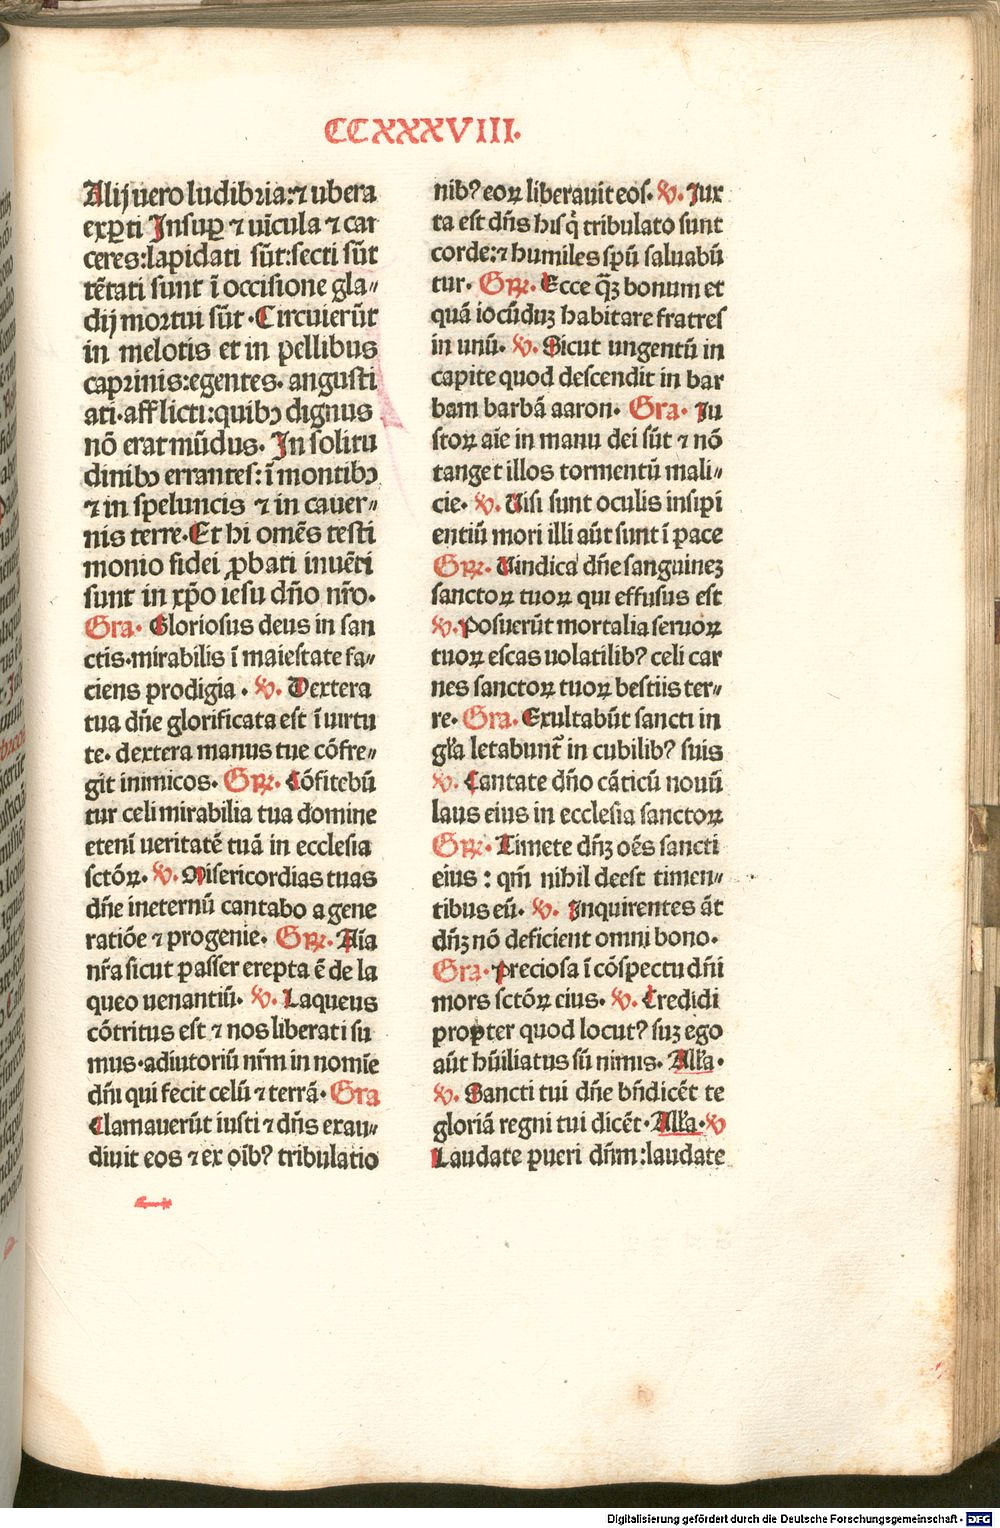 CCXXXVIII.
Alij uero ludibria:⁊ ubera
exꝑti Insuꝑ ⁊ uĩcula ⁊ car
ceres:lapidati sũt:secti sũt
tẽtati sunt ĩ occisione gla⸗
dij mortui sũt · Circuierũt
in melotis et in pellibus
caprinis:egentes. angusti
ati.afflicti:quibꝯ dignus
nõ erat mũdus. In solitu
dinibꝯ errantes: ĩ montibꝯ
⁊ in speluncis ⁊ in cauer⸗
nis terre. Et hi omẽs testi
monio fidei ꝓbati inuẽti
sunt in xp̃o iesu dño nr̃o.
Gra. Gloriosus deus in san
ctis.mirabilis ĩ maiestate fa⸗
ciens prodigia . ℣. Dextera
tua dñe glorificata est ĩ uirtu
te. dextera manus tue cõfre⸗
git inimicos. Gꝶ. Cõfitebũ
tur celi mirabilia tua domine
etenĩ ueritatẽ tuã in ecclesia
sctõꝝ. ℣. Misericordias tuas
dñe ineternũ cantabo a gene
ratiõe ⁊ progenie. Gꝶ. Aĩa
nr̃a sicut passer erepta ẽ de la
queo uenantiũ. ℣. Laqueus
cõtritus est ⁊ nos liberati su
mus.adiutoriũ nr̃m in nomĩe
dñi qui fecit celũ ⁊ terrã. Gra
Clamauerũt iusti ⁊ dñs exau⸗
diuit eos ⁊ ex oĩb? tribulatio
nib? eoꝝ liberauit eos. ℣. Iux
ta est dñs his q̃ tribulato sunt
corde:⁊ humiles sp̃ũ saluabũ
tur. Gꝶ. Ecce q̃ꝫ bonum et
quã iocũduꝫ habitare fratres
in unũ. ℣. Sicut ungentũ in
capite quod descendit in bar
bam barbã aaron. Gra. Iu
stoꝝ aĩe in manu dei sũt ⁊ nõ
tanget illos tormentũ mali⸗
cie. ℣. Uisi sunt oculis insipi
entiũ mori illi aũt sunt ĩ pace
Gꝶ. Uindica dñe sanguineꝫ
sanctoꝝ tuoꝝ qui effusus est
℣. Posuerũt mortalia seruoꝝ
tuoꝝ escas uolatilib? celi car
nes sanctoꝝ tuoꝝ bestiis ter⸗
re. Gra. Exultabũt sancti in
gl̃a letabunt̃ in cubilib? suis
℣. Cantate dño cãticũ nouũ
laus eius in ecclesia sanctoꝝ
Gꝶ. Timete dñꝫ oẽs sancti
eius : qm̃ nihil deest timen⸗
tibus eũ. ℣. Inquirentes ãt
dñꝫ nõ deficient omni bono.
Gra. Preciosa ĩ cõspectu dñi
mors sctõꝝ eius. ℣. Credidi
propter quod locut? suꝫ ego
aũt hũiliatus sũ nimis. All̃a.
℣. Sancti tui dñe bñdicẽt te
gloriã regni tui dicẽt. All̃a. ℣
Laudate pueri dñm:laudate
Digitalisierung gefördert durch die Deutsche Forschungsgemeinschaft - DFG